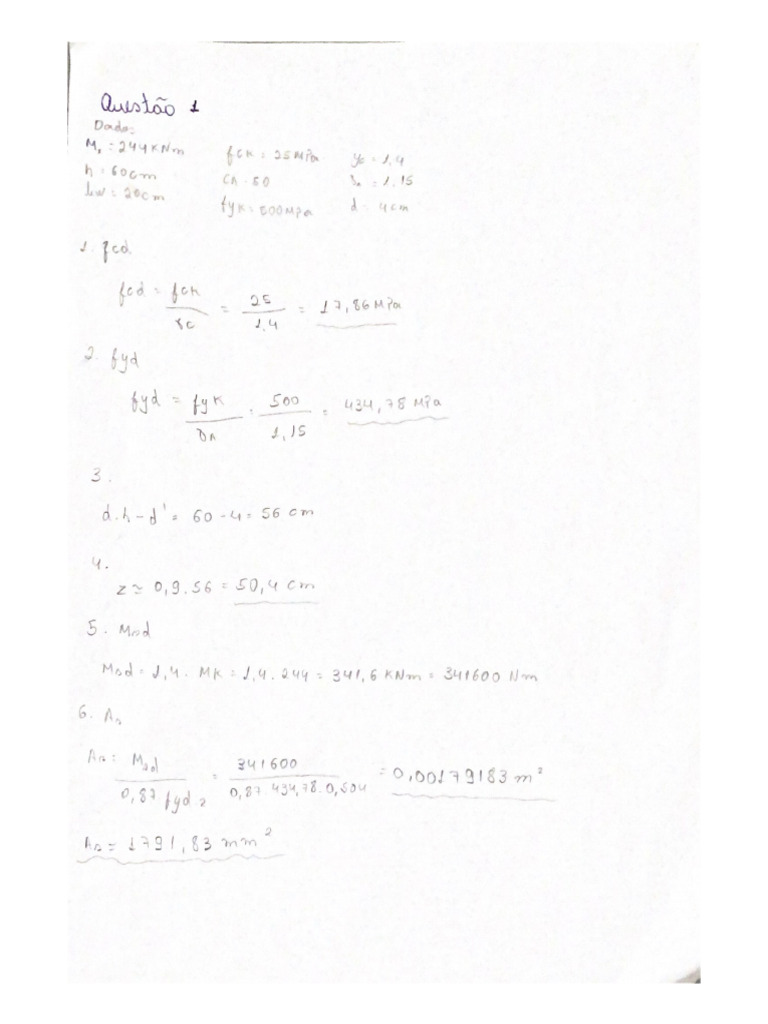 Questão 1
Dado:
Mₛ = 244 KNm fck = 25MPa γc = 1,4
h = 60cm CA - 50 γₛ = 1,15
bw = 20cm fyk = 500MPa d = 4cm
1. fcd
fcd = fck / γc = 25 / 1,4 = 17,86 MPa
2. fyd
fyd = fyk / γs = 500 / 1,15 = 434,78 MPa
3.
d = h - d' = 60 - 4 = 56 cm
4.
z ≃ 0,9 . 56 = 50,4 cm
5. Msd
Msd = 1,4 . MK = 1,4 . 244 = 341,6 KNm = 341600 Nm
6. As
As = Msd / 0,87 fyd . z = 341600 / 0,87 . 434,78 . 0,504 = 0,00179183 m²
As = 1791,83 mm²